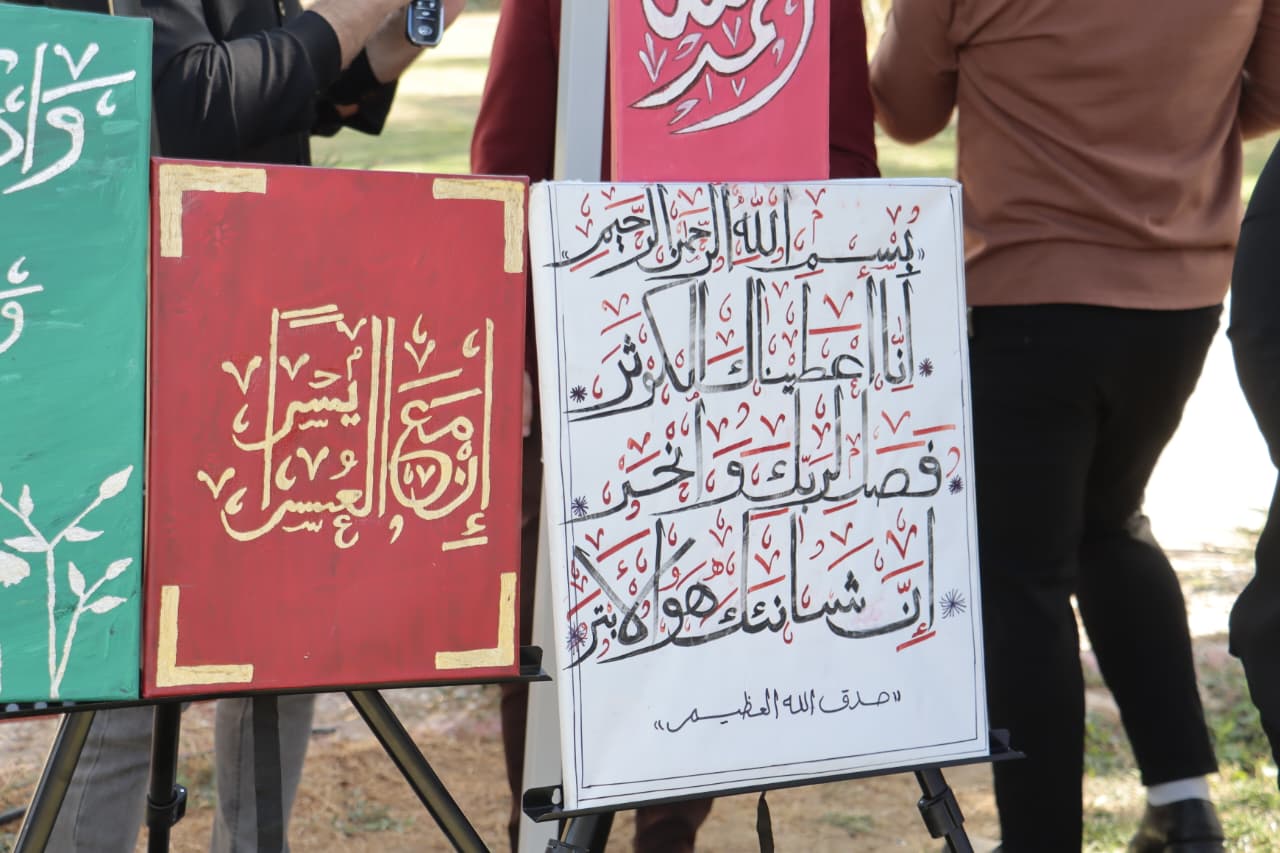 إن مع العسر يسرًا
«بسم الله الرحمن الرحيم»
إنا أعطيناك الكوثر
فصل لربك وانحر
إن شانئك هو الأبتر
«صدق الله العظيم»